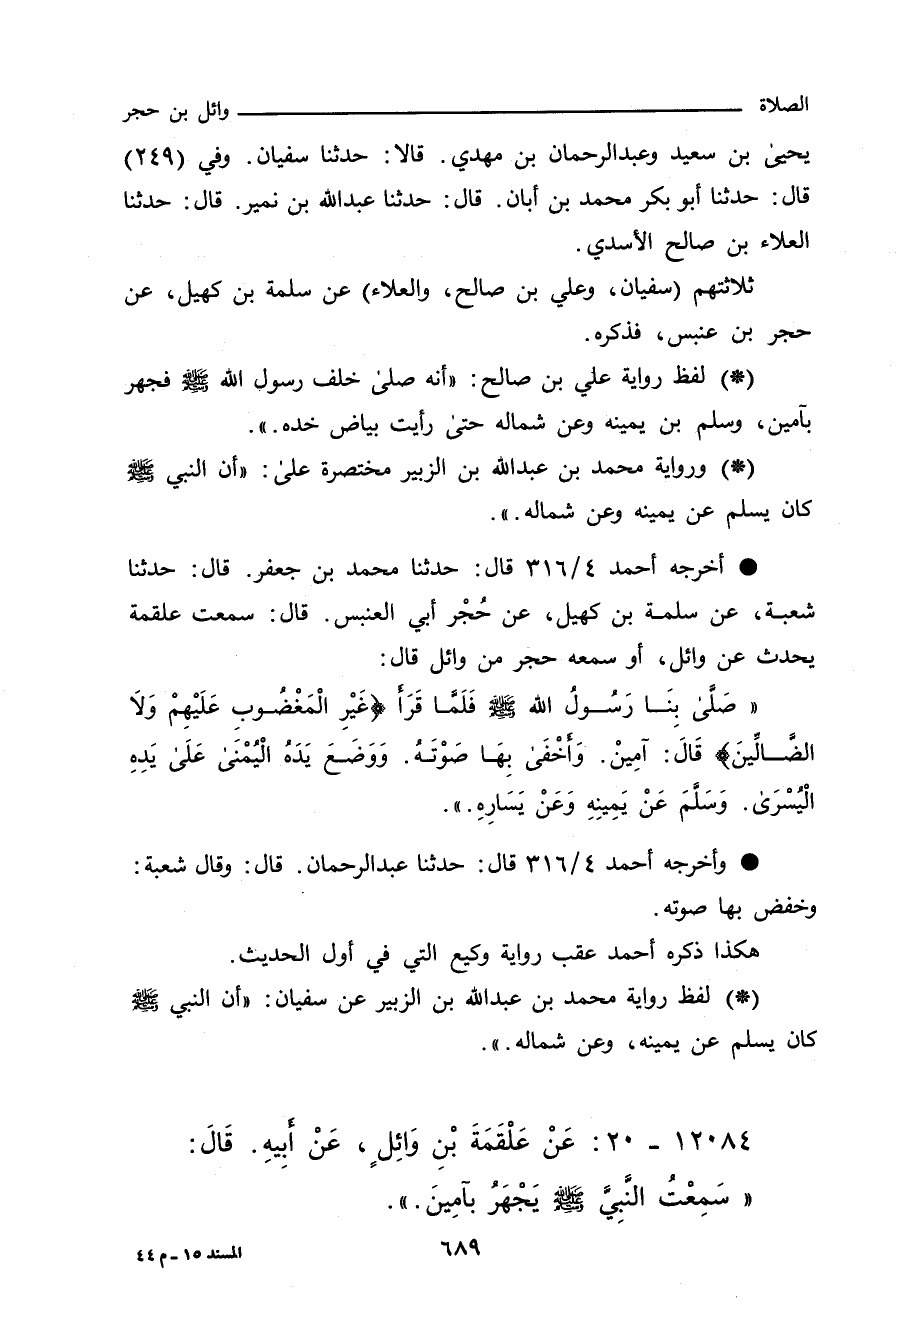 الصلاة ــــــــ وائل بن حجر
يحيىٰ بن سعيد وعبدالرحمان بن مهدي. قالا: حدثنا سفيان. وفي (٢٤٩)
قال: حدثنا أبو بكر محمد بن أبان. قال: حدثنا عبدالله بن نمير. قال: حدثنا
العلاء بن صالح الأسدي.
ثلاثتهم (سفيان، وعلي بن صالح، والعلاء) عن سلمة بن كهيل، عن
حجر بن عنبس، فذكره.
(*) لفظ رواية علي بن صالح: «أنه صلىٰ خلف رسول الله ﷺ فجهر
بآمين، وسلم بن يمينه وعن شماله حتىٰ رأيت بياض خده.».
(*) ورواية محمد بن عبدالله بن الزبير مختصرة علىٰ: «أن النبي ﷺ
كان يسلم عن يمينه وعن شماله.».
● أخرجه أحمد ٣١٦/٤ قال: حدثنا محمد بن جعفر. قال: حدثنا
شعبة، عن سلمة بن كهيل، عن حُجْر أبي العنبس. قال: سمعت علقمة
يحدث عن وائل، أو سمعه حجر من وائل قال:
« صَلَّىٰ بِنَا رَسُولُ الله ﷺ فَلَمَّا قَرَأَ ﴿غَيْرِ الْمَغْضُوبِ عَلَيْهِمْ وَلَا
الضَّالِّينَ﴾ قَالَ: آمِينْ. وَأَخْفَىٰ بِهَا صَوْتَهُ. وَوَضَعَ يَدَهُ الْيُمْنَىٰ عَلَىٰ يَدِهِ
الْيُسْرَىٰ. وَسَلَّمَ عَنْ يَمِينِهِ وَعَنْ يَسَارِهِ.».
● وأخرجه أحمد ٣١٦/٤ قال: حدثنا عبدالرحمان. قال: وقال شعبة:
وخفض بها صوته.
هكذا ذكره أحمد عقب رواية وكيع التي في أول الحديث.
(*) لفظ رواية محمد بن عبدالله بن الزبير عن سفيان: «أن النبي ﷺ
كان يسلم عن يمينه، وعن شماله.».
١٢٠٨٤ - ٢٠: عَنْ عَلْقَمَةَ بْنِ وَائِلٍ، عَنْ أَبِيهِ. قَالَ:
« سَمِعْتُ النَّبِيَّ ﷺ يَجْهَرُ بِآمِينَ.».
٦٨٩
المسند ١٥ - م ٤٤